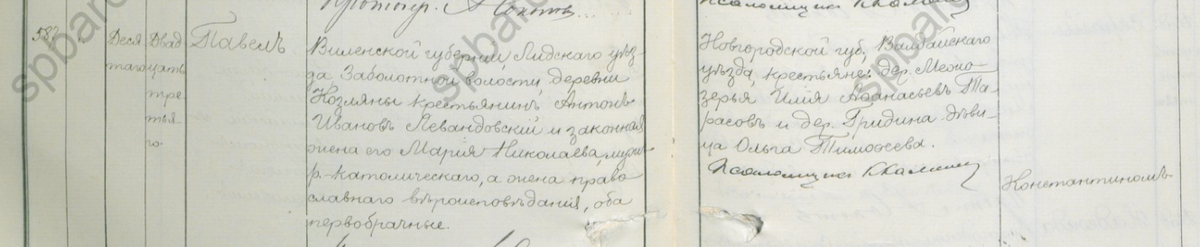 Протоіер.
Псаломщикъ
58.
Деся
таго
Двад
цать
тре
тья
го
Павелъ
Виленской губерніи Лидскаго уѣз-
да Заболотной волости, деревни
Козляны крестьянинъ Антонъ
Ивановъ Левандовскій и законная
жена его Марія Николаева, мужъ
р.-католическаго, а жена право
славнаго вѣроисповѣданія, оба
первобрачные.
Новгородской губ., Валдайскаго
уѣзда, крестьяне: дер.
озерья Илія Аѳанасьевъ Та-
расовъ и дер. Гридина дѣви-
ца Ольга Тимоѳеева.
Псаломщикъ
Константиномъ
spbarc
spbarc
spbar